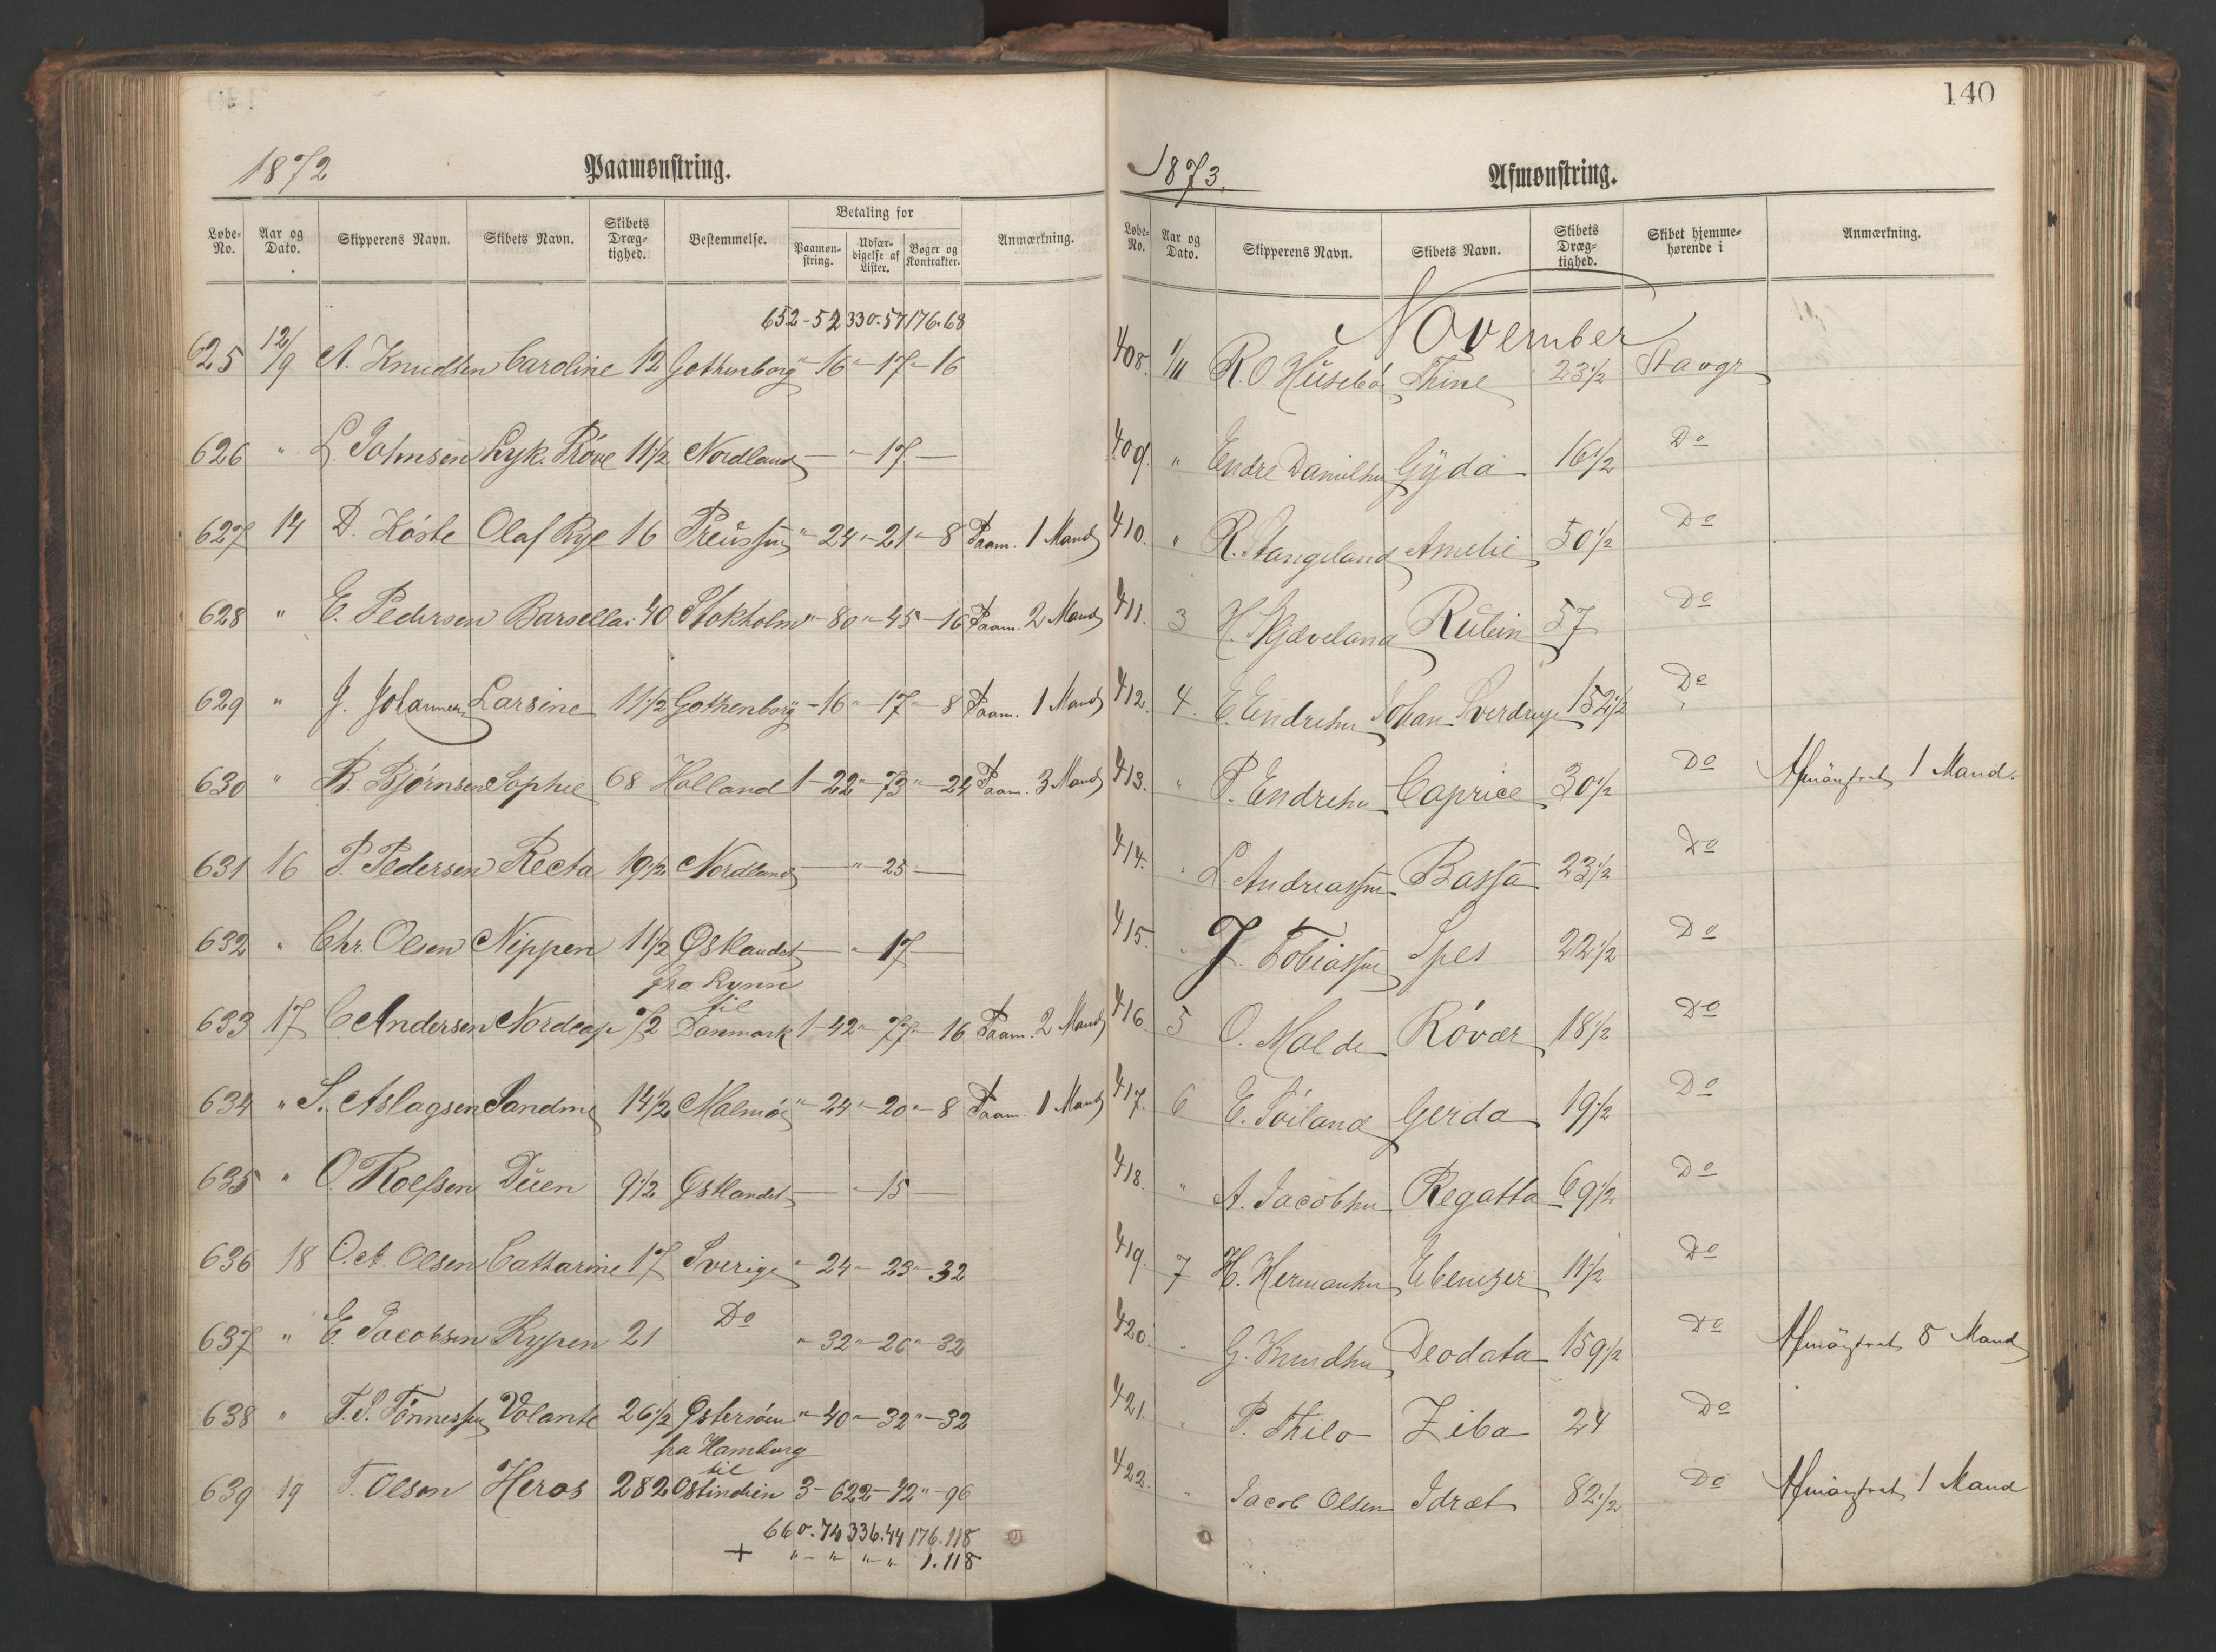 1872 Paamønstring.
Løbe-No. Aar og Dato. Skipperens Navn. Skibets Navn. Skibets Dræg-tighed. Bestemmelse. Betaling for Anmærkning.
Paamøn-string. Udfær-digelse af Lister. Bøger og Kontrakter.
652-52 330.57 176.68
625 12/9 A. Knudsen Caroline 12 Gothenborg "-16 "-17 "-16
626 " L Johnsen Lyk. Prøve 11 1/2 Nordland — "-17 —
627 14 D. Høste Olaf Rye 16 Preussen "-24 "-21 "-8 Paam. 1 Mand
628 " E. Pedersen Barsella 40 Stokholm "-80 "-45 -16 Paam. 2 Mand
629 " J. Johannesen Larsine 11 1/2 Gothenborg -16 "-17 "-8 Paam. 1 Mand
630 " B. Bjørnsen Sophie 68 Holland 1-22 "-73 "-24 Paam. 3 Mand
631 16 P. Pedersen Recta 19 1/2 Nordland — "-25 —
632 " Chr. Olsen Nippen 11 1/2 Østlandet — "-17 —
fra Lynn
til
633 17 C. Andersen Nordcap 72 Danmark 1-42 "-77 "-16 Paam. 2 Mand
634 " S. Aslagsen Sandnes 14 1/2 Malmøe "-24 "-20 "-8 Paam. 1 Mand
635 " O. Roelsen Duen 9 1/2 Østlandet — "-15 —
636 18 O. A. Olsen Catharine 17 Sverige "-24 "-23 "-32
637 " E. Jacobsen Rypen 21 Do "-32 "-26 "-32
638 " T. S. Tønnessen Volante 26 1/2 Østersøen "-40 "-32 "-32
fra Hamburg
til
639 19 T. Olsen Heros 282 Ostindien 3-62 2-42 "-96
660.74 336.44 176.118
+ "-" "-" 1.118
140
1873. Afmønstring.
Løbe-No. Aar og Dato. Skipperens Navn. Skibets Navn. Skibets Dræg-tighed. Skibet hjemme-hørende i Anmærkning.
November
408. 1/11 R. O. Husebø Thine 23 1/2 Stavgr
409. " Endre Danielsen Gyda 16 1/2 Do
410. " R. Stangeland Amelie 50 1/2 Do
411. 3 H. Kjæveland Rubin 57 Do
412. 4. E. Endresen Johan Sverdrup 152 1/2 Do
413. " P. Endresen Caprice 30 1/2 Do Afmönstret 1 Mand.
414. " L. Andreassen Bassa 23 1/2 Do
415. " J. Tobiassen Spes 22 1/2 Do
416. 5 O. Malde Røvær 18 1/2 Do
417. 6 E. Søiland Gerda 19 1/2 Do
418. " A. Jacobsen Regatta 69 1/2 Do
419. 7 H. Hermansen Ebenezer 11 1/2 Do
420. " G. Knudsen Deodata 159 1/2 Do Afmönstret 8 Mand
421. " P. Thilo Ziba 24 Do
422. " Jacob Olsen Idræt 82 1/2 Do Afmönstret 1 Mand